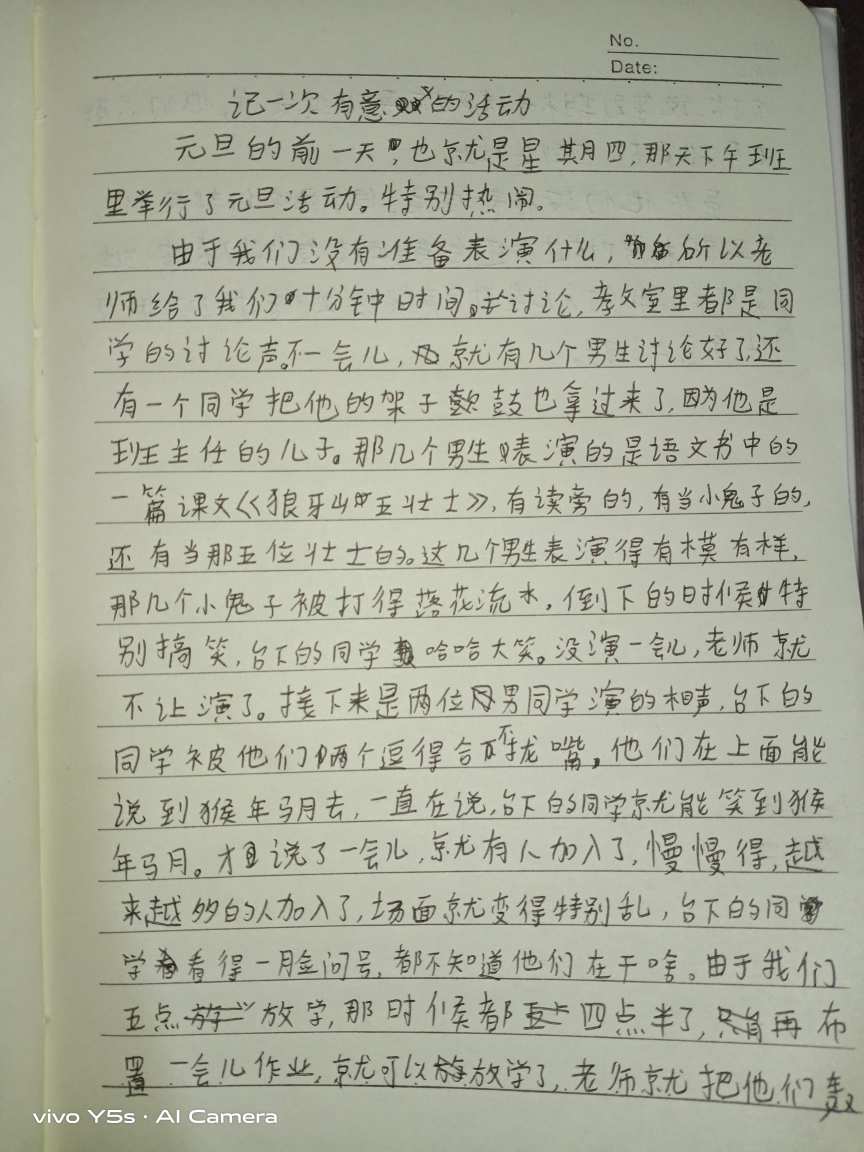 No.
Date:
记一次有意义的活动
元旦的前一天,也就是星期四,那天下午班
里举行了元旦活动。特别热闹。
由于我们没有准备表演什么,所以老
师给了我们十分钟时间。去讨论,教室里都是同
学的讨论声。不一会儿,就有几个男生讨论好了,还
有一个同学把他的架子鼓也拿过来了,因为他是
班主任的儿子。那几个男生表演的是语文书中的
一篇课文《狼牙山五壮士》,有读旁的,有当小鬼子的,
还有当那五位壮士的。这几个男生表演得有模有样,
那几个小鬼子被打得落花流水,倒下的时候特
别搞笑,台下的同学哈哈大笑。没演一会儿,老师就
不让演了。接下来是两位男同学演的相声,台下的
同学被他们俩个逗得合不拢嘴,他们在上面能
说到猴年马月去,一直在说,台下的同学就能笑到猴
年马月。才说了一会儿,就有人加入了,慢慢得,越
来越多的人加入了,场面就变得特别乱,台下的同
学看得一脸问号,都不知道他们在干啥。由于我们
五点放学,那时候都四点半了,再布
置一会儿作业,就可以放学了,老师就把他们轰
vivo Y5s · AI Camera